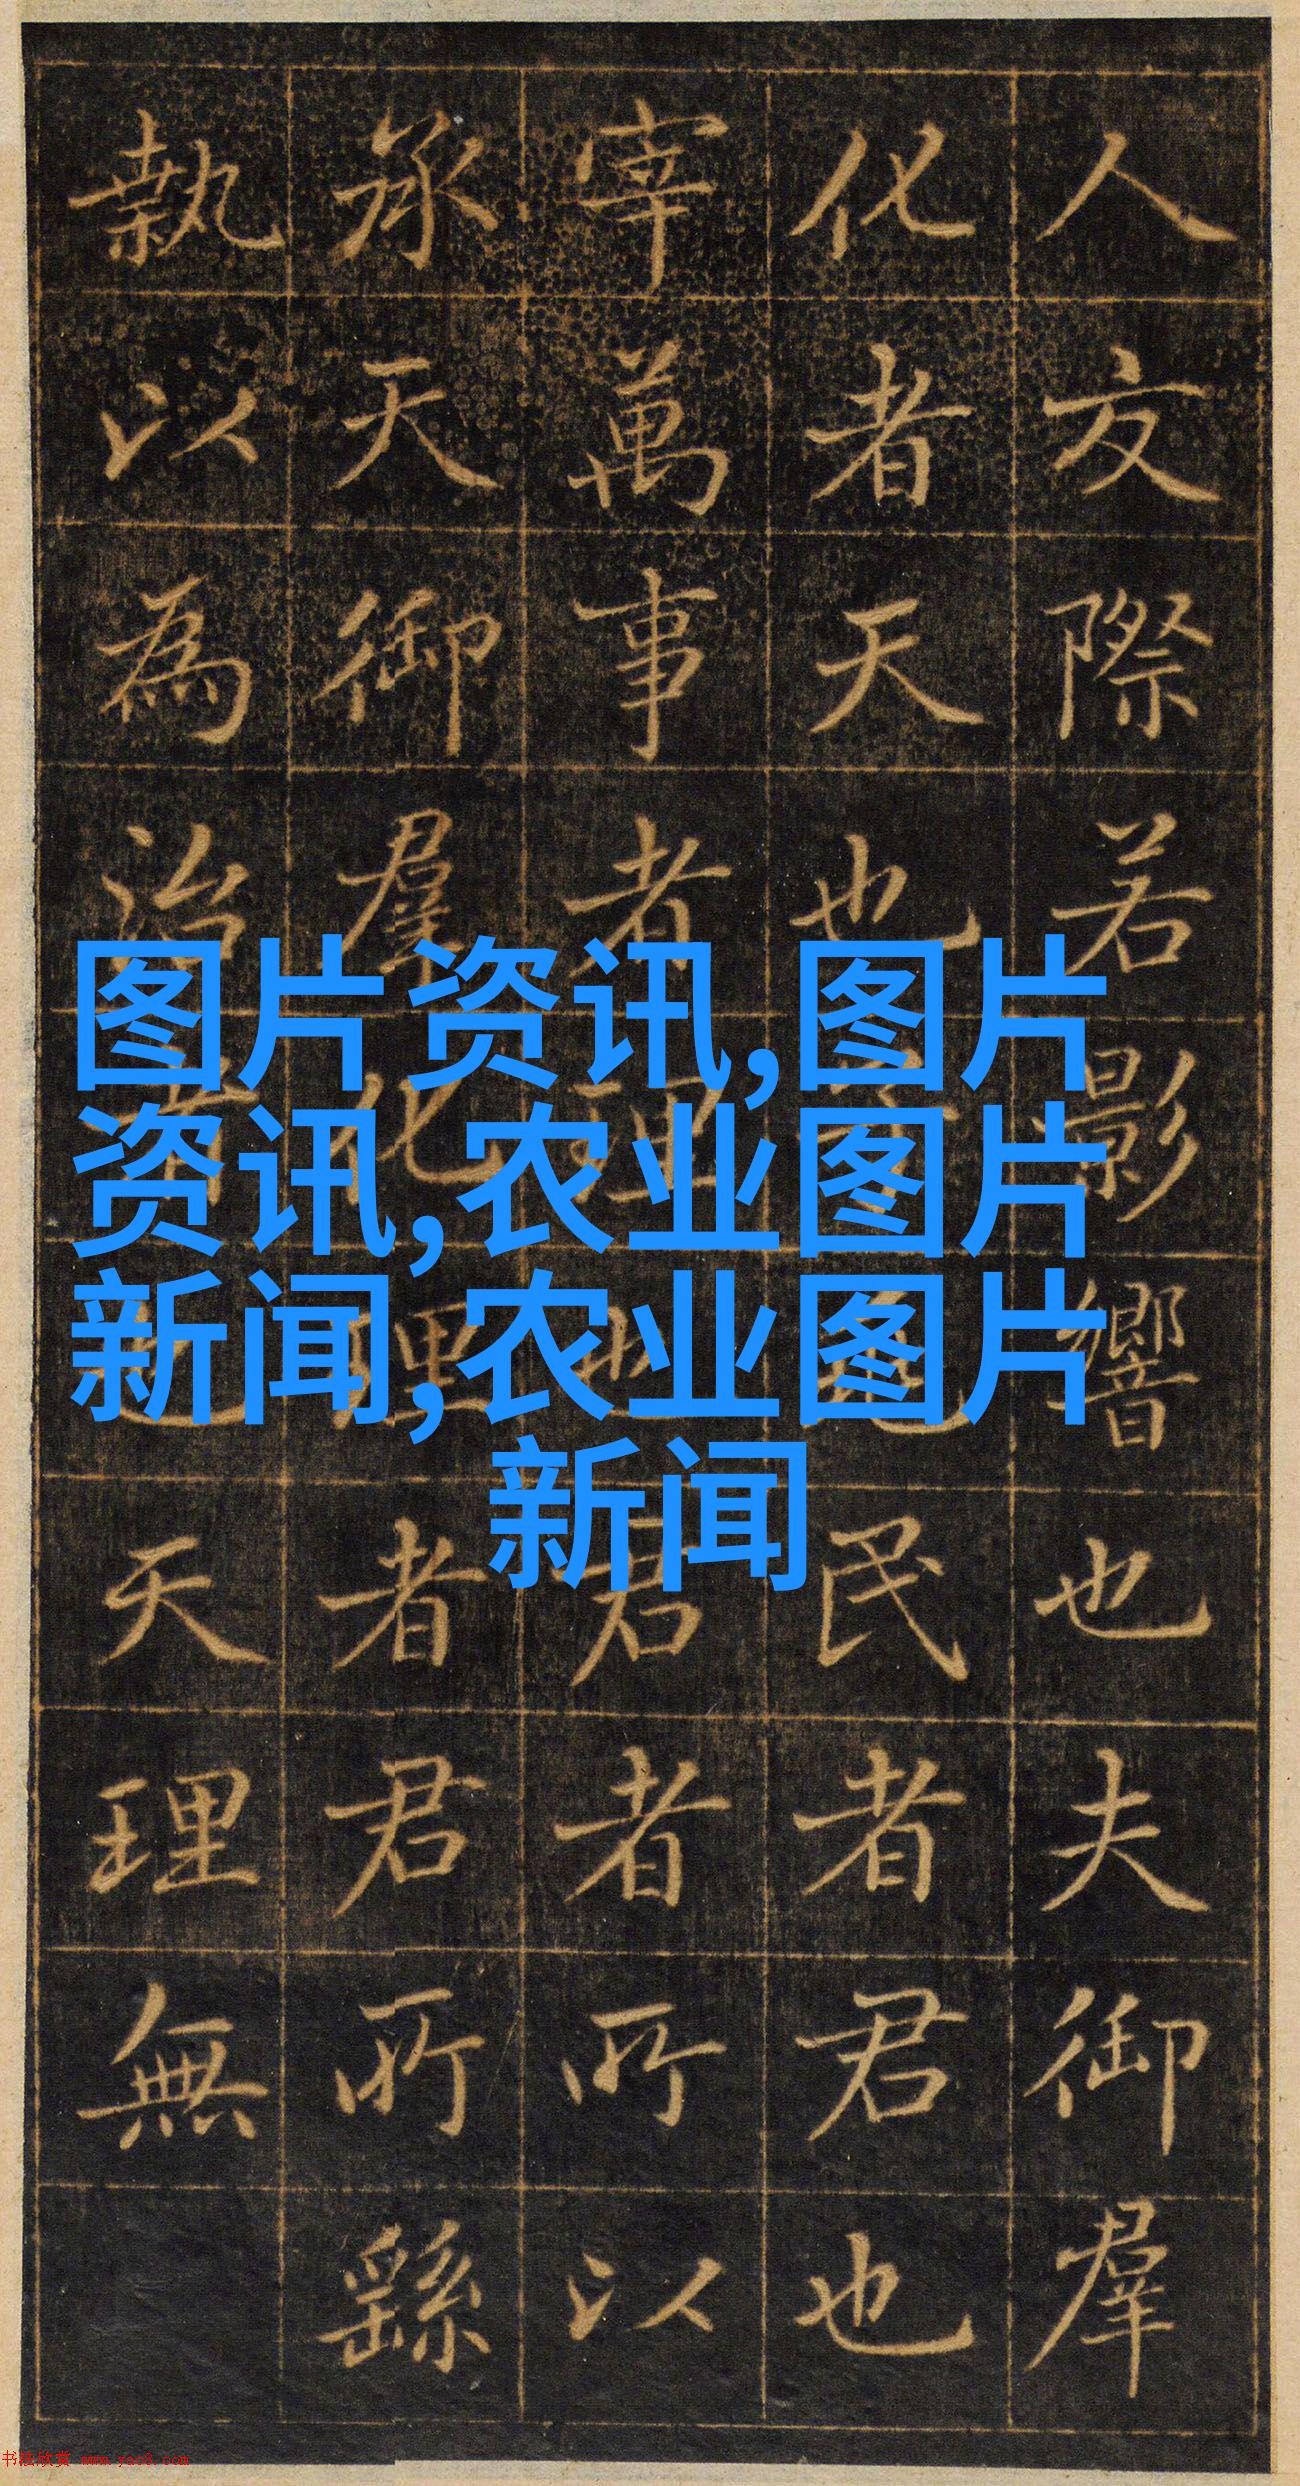 人交際若影響也夫御羣
化者天也民者君也
宰萬事者理君者所以
承天御羣化理者君所繇
執以為治者也天理無
图片资讯,图片
资讯,农业图片
新闻,农业图片
新闻
书法欣赏 www.yac8.com